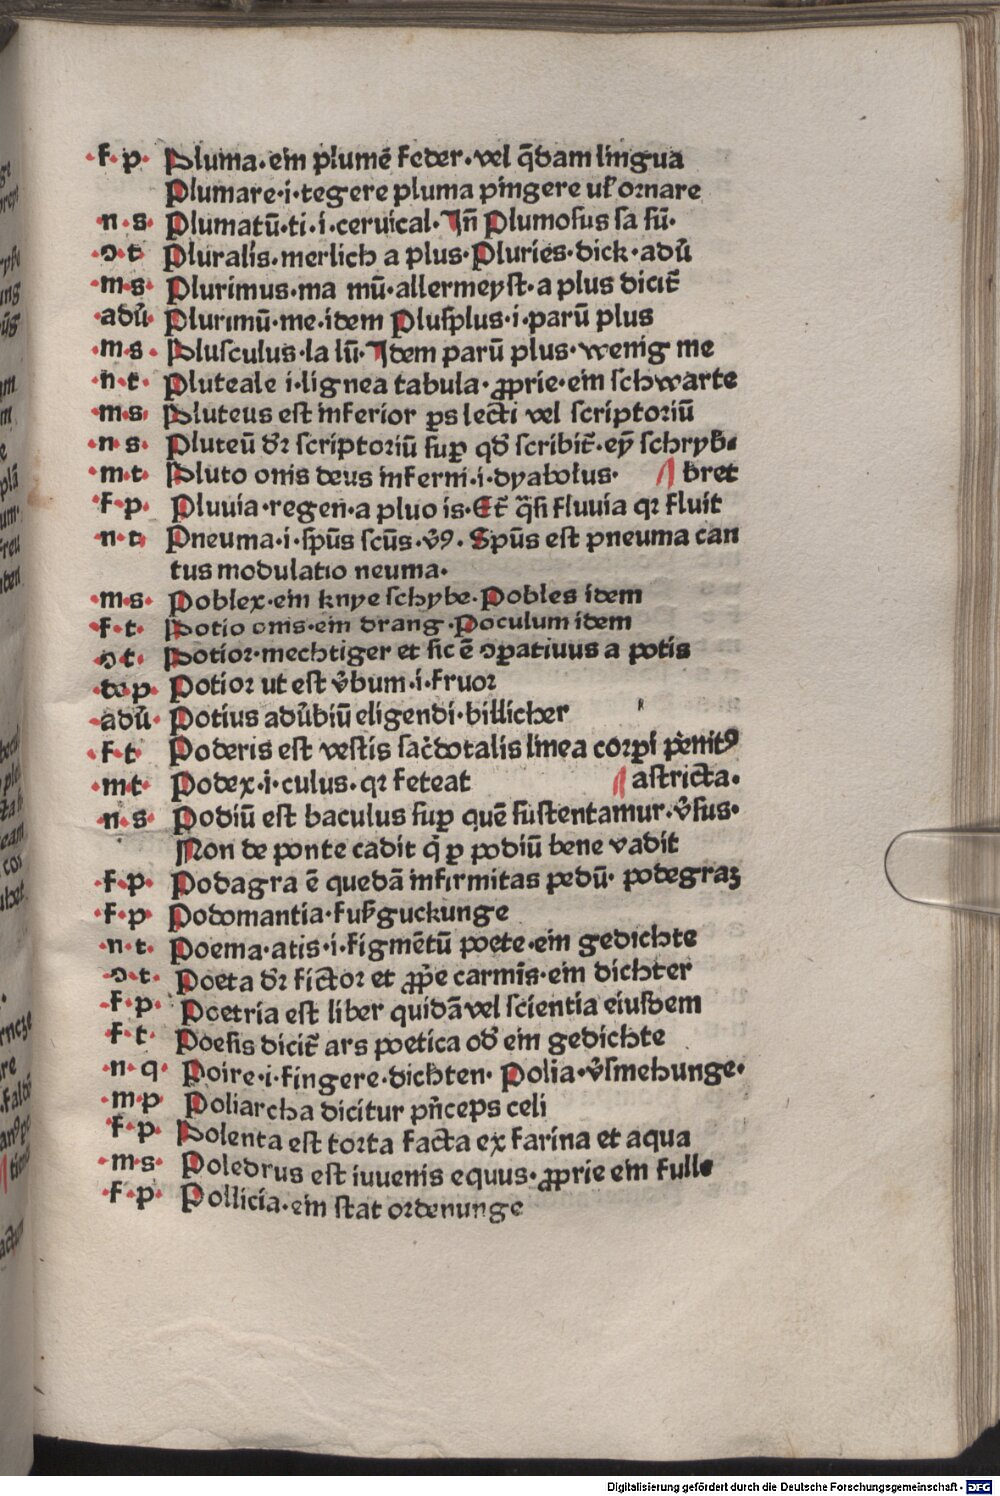 ·f·p· Pluma·ein plumē feder·vel q̄dam lingua
Plumare·i·tegere pluma pingere ul' ornare
·n·s· Plumatū·ti·i·cervical·Jn̄ Plumosus sa sū·
·ɔ·t· Pluralis·merlich a plus·Pluries·dick·adū
·m·s· Plurimus·ma mū·allermeyst·a plus dicit̄
·adū· Plurimū·me·idem Plusplus·i·parū plus
·m·s· Plusculus·la lū·Jdem parū plus·wenig me
·n·t· Pluteale i·lignea tabula·ꝓprie·ein schwarte
·m·s· Pluteus est inferior ꝑs lecti vel scriptoriū
·n·s· Pluteū dr̄ scriptoriū suꝑ qđ scribit̄·eȳ schryb·
·m·t· Pluto onis deus inferni·i·dyabolus· ¶ bret
·f·p· Pluvia·regen·a pluo is·Et̄ q̄si fluvia qꝛ fluit
·n·t· Pneuma·i·spūs scūs·v̄9·Spūs est pneuma can
tus modulatio neuma·
·m·s· Poblex·ein knye schybe·Pobles idem
·f·t· Potio onis·ein drang·Poculum idem
·ɔt· Potior·mechtiger et sic ē ɔꝑativus a potis
·de·p· Potior ut est v̄bum·i·fruor
·adū· Potius adv̄biū eligendi·billicher
·f·t· Poderis est vestis sac̄dotalis linea corꝑi p̄enit9
·m·t· Podex·i·culus·qꝛ feteat ¶ astricta·
·n·s· Podiū est baculus suꝑ quē sustentamur·v̄sus·
Non de ponte cadit q̄ ꝑ podiū bene vadit
·f·p· Podagra ē quedā infirmitas pedū·podegraꝫ
·f·p· Podomantia·fuſzguckunge
·n·t· Poema·atis·i·figmētū poete·ein gedichte
·ɔ·t· Poeta dr̄ fictor et ꝓp̄e carmīs·ein dichter
·f·p· Poetria est liber quidā vel scientia eiusdem
·f·t· Poesis dicit̄ ars poetica od̄ ein gedichte
·n·q· Poire·i·fingere·dichten·Polia·v̄smehunge·
·m·p Poliarcha dicitur pn̄ceps celi
·f·p· Polenta est torta facta ex farina et aqua
·m·s· Poledrus est iuvenis equus·ꝓprie ein fulle
·f·p· Pollicia·ein stat ordenunge
Digitalisierung gefördert durch die Deutsche Forschungsgemeinschaft - DFG